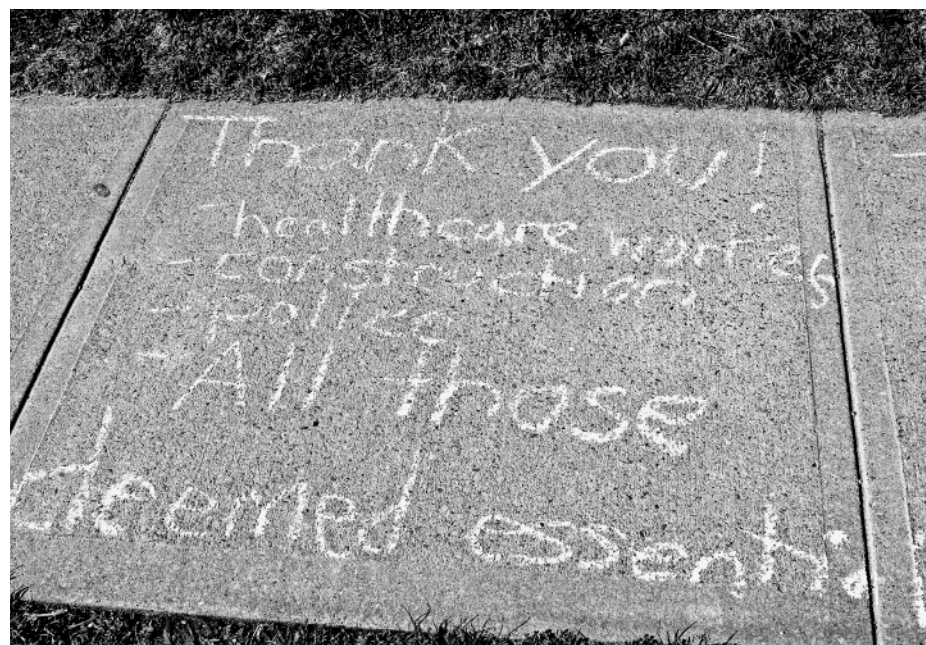 Thank you!
-healthcare workers
-construction
-police
-All those
deemed essenti